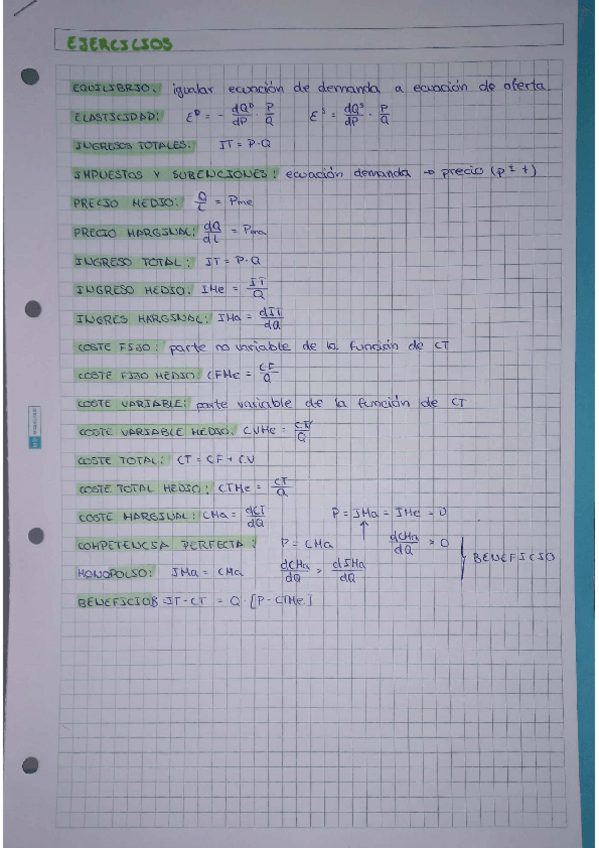 EJERCICIOS
EQUILIBRIO: igualar ecuación de demanda a ecuación de oferta.
ELASTICIDAD: E^D = - dQ^D/dP · P/Q   E^S = dQ^S/dP · P/Q
INGRESOS TOTALES: IT = P·Q
IMPUESTOS Y SUBENCIONES: ecuación demanda → precio (p ± t)
PRECIO MEDIO: Q/L = Pme
PRECIO MARGINAL: dQ/dL = Pma
INGRESO TOTAL: IT = P·Q
INGRESO MEDIO: IMe = IT/Q
INGRES MARGINAL: IMa = dIT/dQ
COSTE FIJO: parte no variable de la función de CT
COSTE FIJO MEDIO: CFMe = CF/Q
COSTE VARIABLE: parte variable de la función de CT
COSTE VARIABLE MEDIO: CVMe = CV/Q
COSTE TOTAL: CT = CF + CV
COSTE TOTAL MEDIO: CTMe = CT/Q
COSTE MARGINAL: CMa = dCT/dQ   P = IMa = IMe = D
COMPETENCIA PERFECTA: P = CMa   dCMa/dQ > 0
MONOPOLIO: IMa = CMa   dCMa/dQ > dIMa/dQ   BENEFICIO
BENEFICIOB = IT - CT = Q · [P - CTMe]